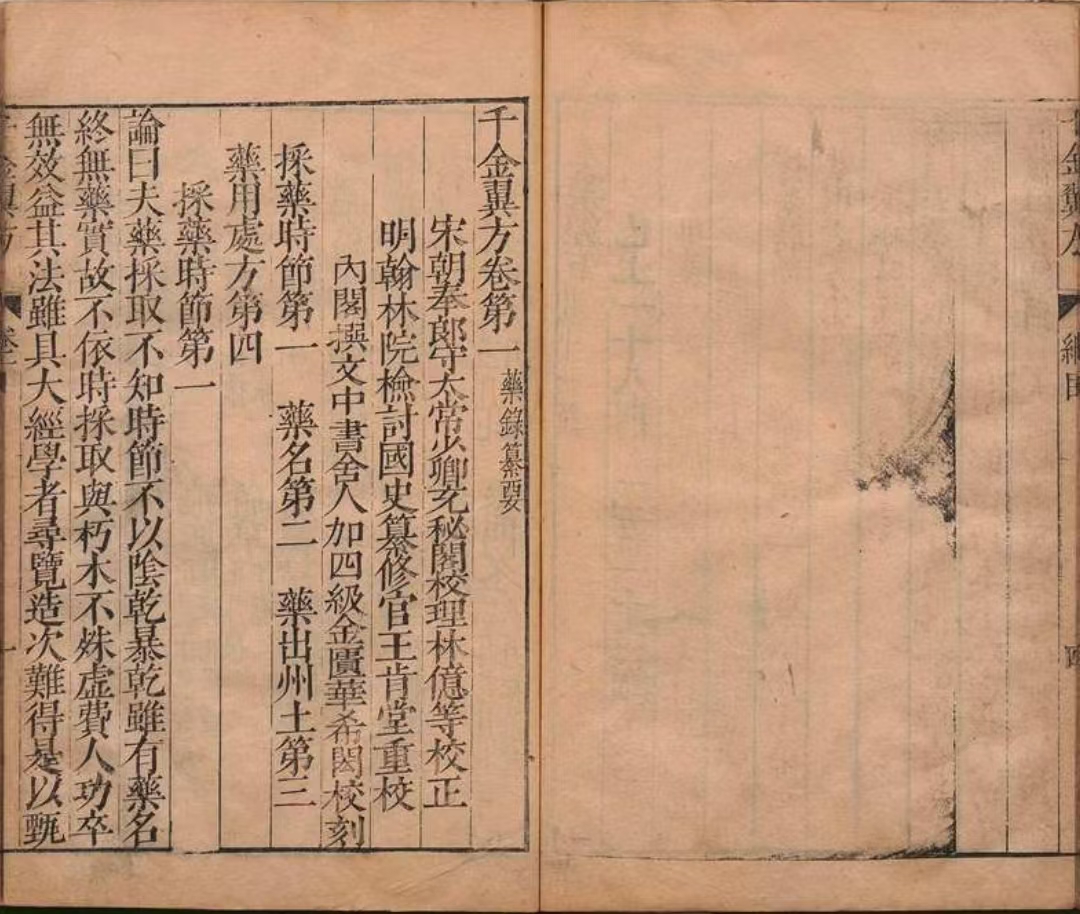 金翼方
千金翼方卷第一 藥錄纂要
宋朝奉郎守太常少卿充秘閣校理林億等校正
明翰林院檢討國史纂修官王肯堂重校
內閣撰文中書舍人加四級金匱華希閎校刻
採藥時節第一 藥名第二 藥出州土第三
藥用處方第四
採藥時節第一
論曰夫藥採取不知時節不以陰乾暴乾雖有藥名
終無藥實故不依時採取與朽木不殊虛費人功卒
無效益其法雖具大經學者尋覽造次難得是以甄